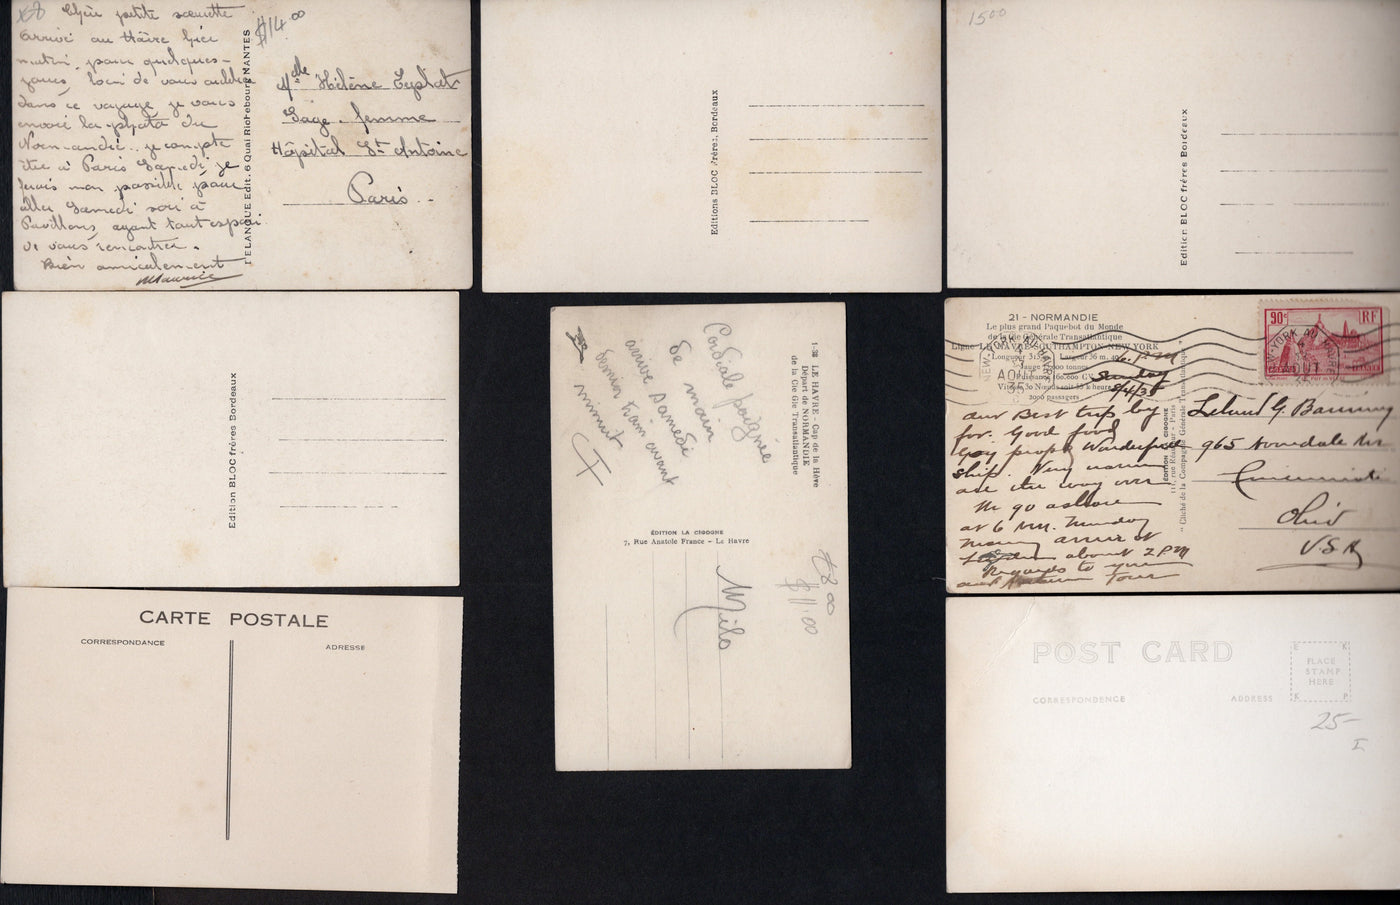 Chère petite sœurette
arrivé au Hâvre hier
matin, pour quelques-
jours, loin de vous oublier
dans ce voyage je vous
envoi la photo du
Normandie. je compte
être à Paris Samedi je
ferais mon possible pour
aller Samedi soir à
Pavillons, ayant tant espoir
de vous rencontrer.
Bien amicalement
Maurice
$14.00
F. DELANOUE Edit. 6 Quai Richebourg NANTES
Mdlle Hélène
Sage-femme
Hôpital St Antoine
Paris
Editions BLOC frères, Bordeaux
1500
Edition BLOC frères Bordeaux
Edition BLOC frères Bordeaux
1-38 LE HAVRE - Cap de la Hève
Départ de NORMANDIE
de la Cie Gle Transatlantique
Cordiale poignée
de main
arrive Samedi
dernier train avant
minuit
ÉDITION LA CIGOGNE
7, Rue Anatole France - Le Havre
£8.00
$11.00
Milo
21 - NORMANDIE
Le plus grand Paquebot du Monde
de la Cie Générale Transatlantique
Ligne LE HAVRE-SOUTHAMPTON-NEW YORK
NEW-YORK AU HAVRE
AOUT
35
2000 passagers
90c RF
6 P.M
Sunday
8/4/35
our Best trip by
far. Good food
Gay people Wonderful
ship. Very warm
all the way over
We go ashore
at 6 AM. Monday
about 2 PM
Regards to you
ÉDITION LA CIGOGNE
"Cliché de la Compagnie Générale Transatlantique"
Leland G.
965
Cincinnati
Ohio
U.S.A
CARTE POSTALE
CORRESPONDANCE
ADRESSE
POST CARD
CORRESPONDENCE
ADDRESS
E K
PLACE
STAMP
HERE
K P
25-
I